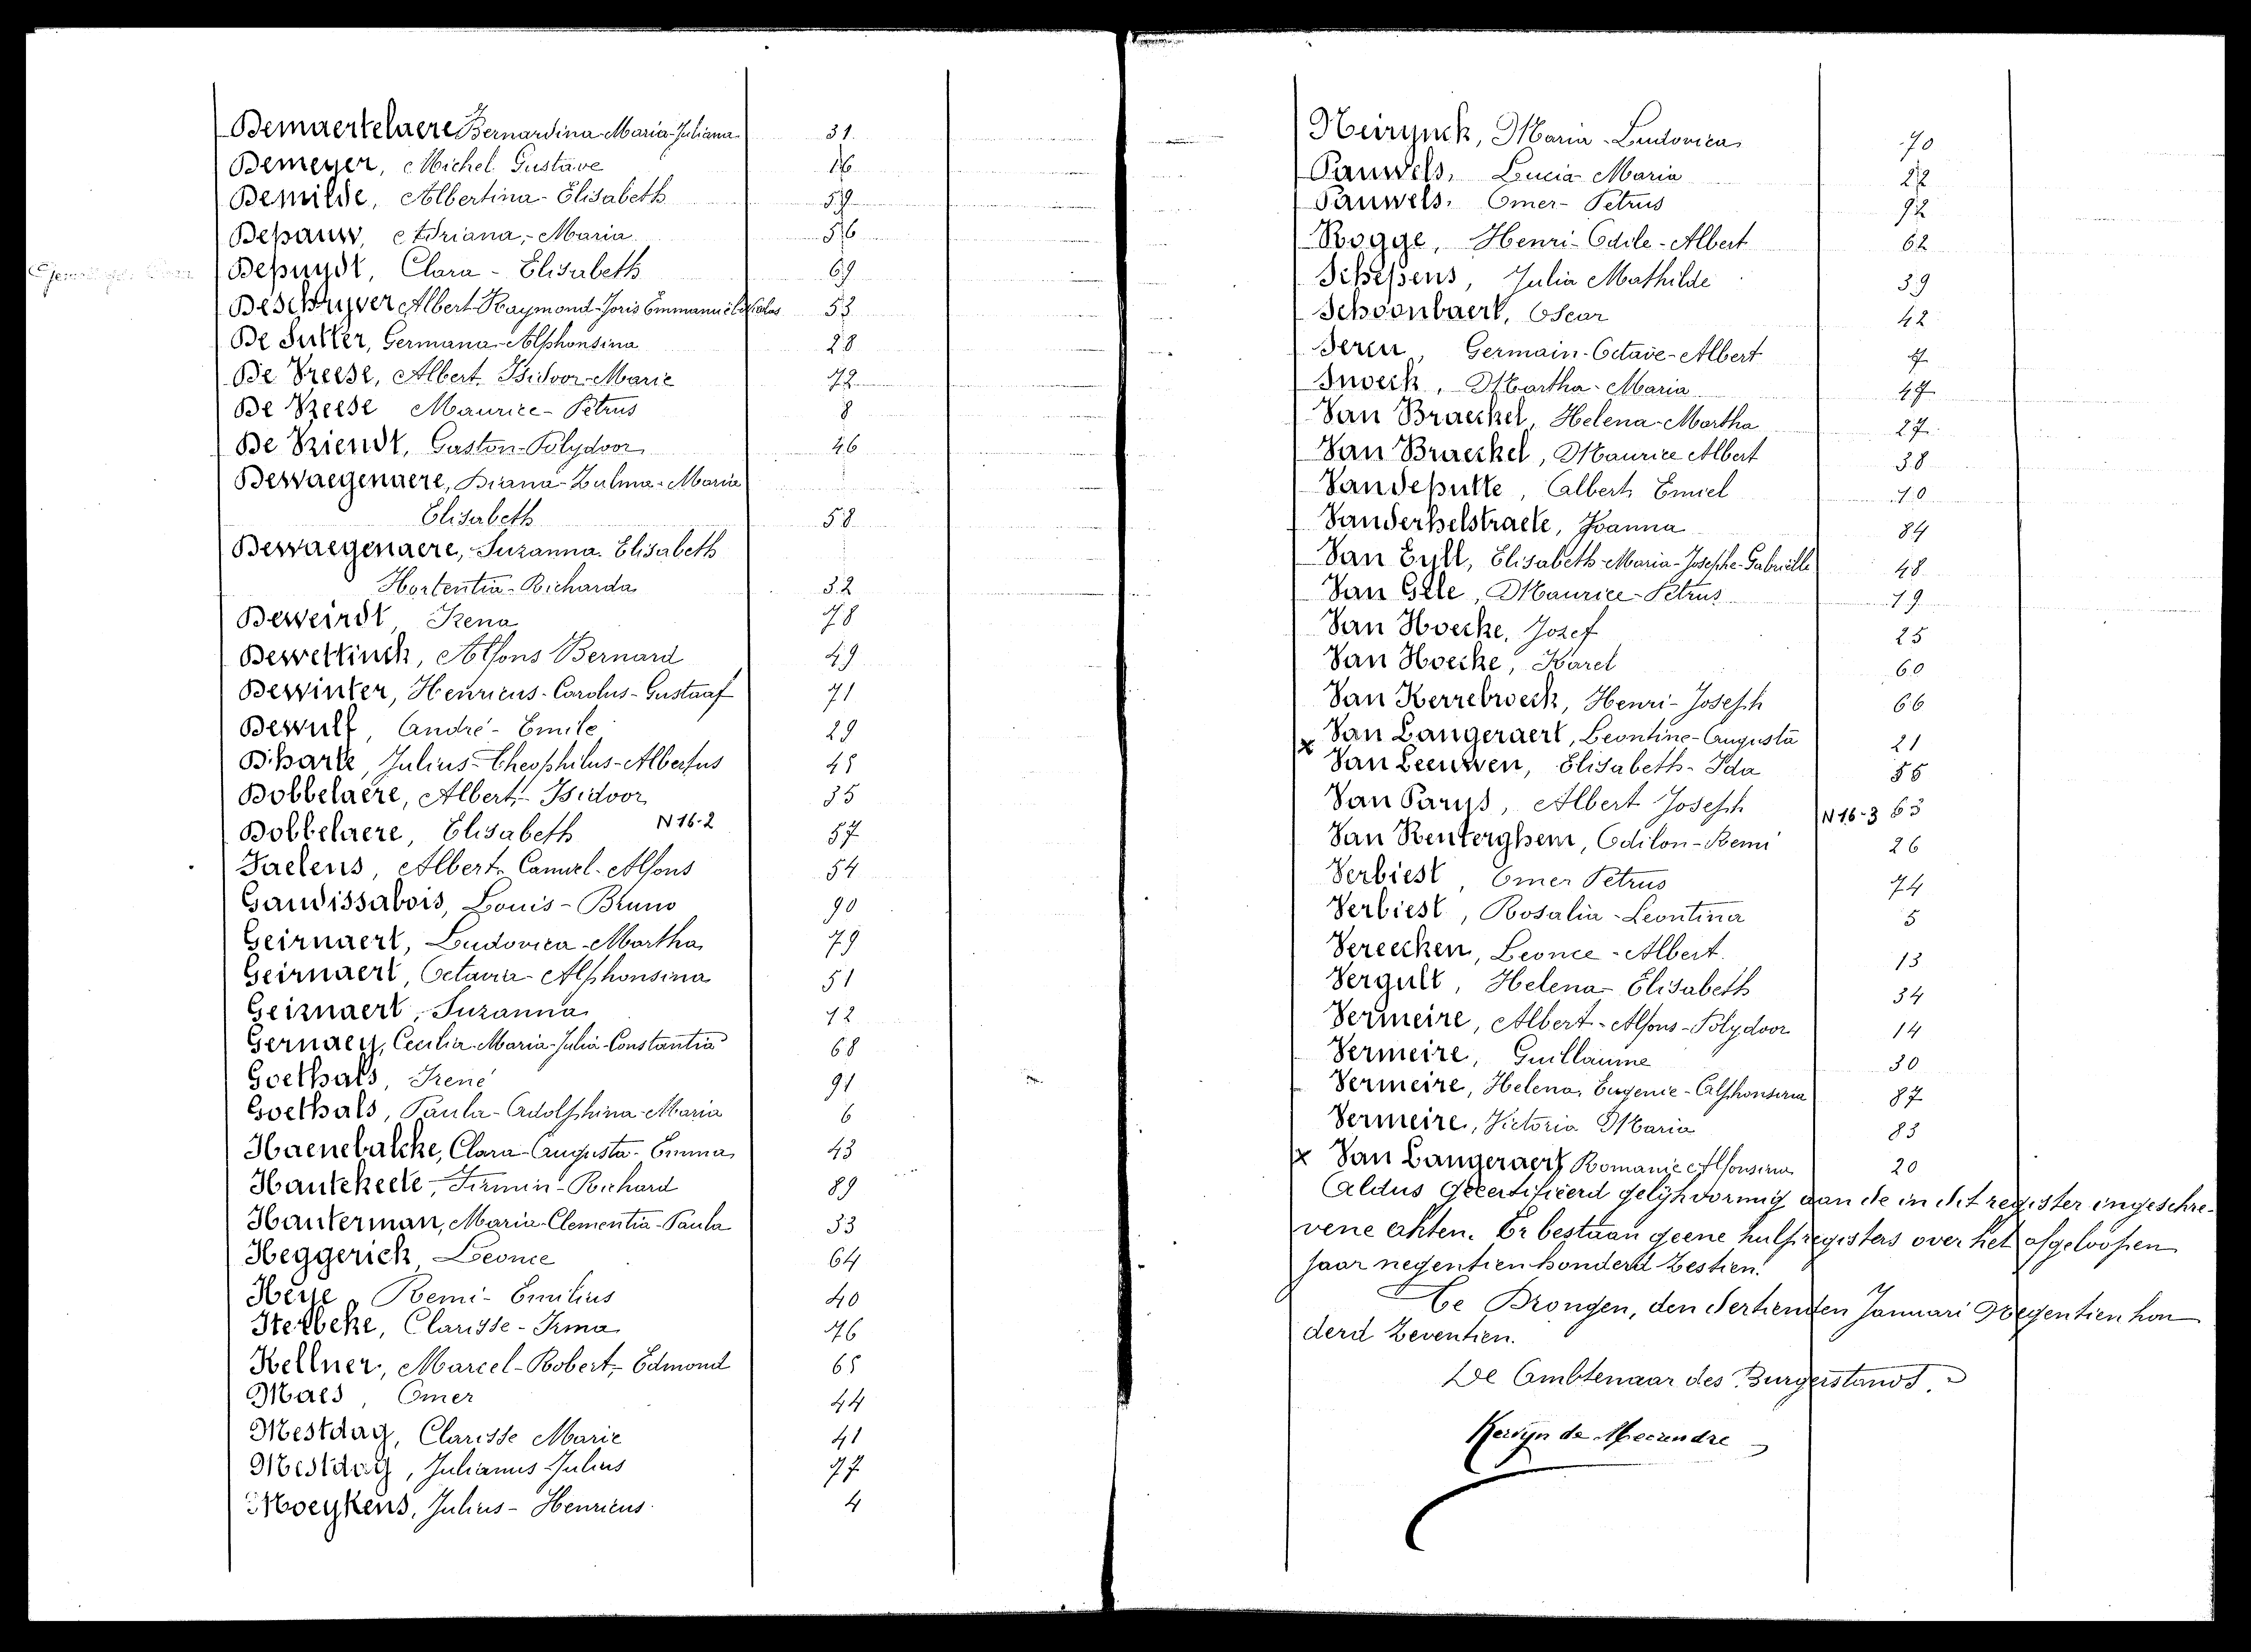 Demaertelaere Bernardina-Maria-Juliana 31
Demeyer, Michel Gustave 16
Demilde, Albertina-Elisabeth 59
Depauw, Adriana,-Maria 56
Depuydt, Clara - Elisabeth 69
Deschryver Albert-Raymond-Joris Emmanuel 53
De Sutter, Germana-Alphonsina 28
De Vreese, Albert-Isidoor-Marie 72
De Vreese Maurice-Petrus 8
De Vriendt, Gaston-Polydoor 46
Dewaegenaere, Diana-Zulma-Maria
Elisabeth 58
Dewaegenaere, Suzanna. Elisabeth
Hortentia-Richarda 32
Deweirdt, Irena 78
Dewettinck, Alfons Bernard 49
Dewinter, Henricus-Carolus-Gustaaf 71
Dewulf, André - Emile 29
Dharte, Julius-Theophilus-Albertus 45
Dobbelaere, Albert-Isidoor 35
Dobbelaere, Elisabeth N 16-2 57
Faelens, Albert-Camiel-Alfons 54
Gaudissabois, Louis-Bruno 90
Geirnaert, Ludovica-Martha 79
Geirnaert, Octavia-Alphonsina 51
Geirnaert, Suzanna 12
Gernaey, Cecilia-Maria-Julia-Constantia 68
Goethals, Irené 91
Goethals, Paula-Adolphina-Maria 6
Haenebalcke, Clara-Augusta-Emma 43
Hautekeete, Firmin-Richard 89
Hauterman, Maria-Clementia-Paula 33
Heggerick Leonce 64
Heye, Remi-Emilius 40
Iterbeke, Clarisse-Irma 76
Kellner, Marcel-Robert-Edmond 65
Maes, Omer 44
Mestdag, Clarisse Marie 41
Mestdag, Julianus-Julius 77
Moeykens, Julius-Henricus 4
Neirynck, Maria-Ludovica 70
Pauwels, Lucia Maria 22
Pauwels, Omer-Petrus 92
Rogge, Henri-Odile-Albert 62
Schepens, Julia Mathilde 39
Schoonbaert, Oscar 42
Seren, Germain-Octave-Albert 7
Snoeck, Martha-Maria 47
Van Braeckel, Helena-Martha 27
Van Braeckel, Maurice Albert 38
Vandeputte, Albert Emiel 10
Vanderhelstraete, Joanna 84
Van Eyll, Elisabeth-Maria-Josephe-Gabrielle 48
Van Gele, Maurice-Petrus 19
Van Hoecke, Jozef 25
Van Hoecke, Karel 60
Van Kerrebroeck, Henri-Joseph 66
x Van Langeraert, Leontine-Augusta 21
Van Leeuwen, Elisabeth-Ida 55
Van Parys, Albert Joseph N 16-3 63
Van Renterghem, Odilon-Remi 26
Verbiest, Omer Petrus 74
Verbiest, Rosalia-Leontina 5
Vereecken, Leonce-Albert 13
Vergult, Helena-Elisabeth 34
Vermeire, Albert-Alfons-Polydoor 14
Vermeire, Guillaume 30
Vermeire, Helena, Eugenie-Alphonsina 87
Vermeire, Victoria Maria 83
x Van Langeraert Romanie Alfonsina 20
Aldus Gecertifieerd gelijkvormig aan de in dit register ingeschre-
vene akten. Er bestaan geene hulpregisters over het afgeloopen
jaar negentien honderd zestien.
Te Drongen, den dertienden Januari Negentien hon
derd zeventien.
De Ambtenaar des Burgerstands.
Kervyn de Meerendre